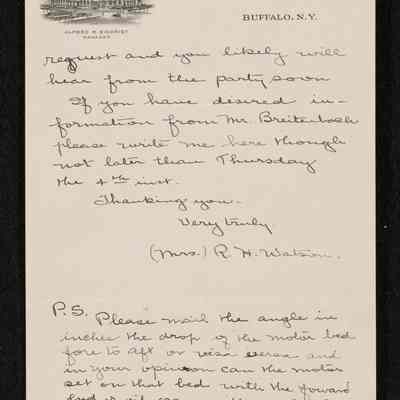 ALFRED H. SIGRIST
MANAGER
BUFFALO, N.Y.
request and you likely will
hear from the party soon
If you have desired in-
formation from Mr. Breitenbach
please write me here though
not later than Thursday
the 4th inst.
Thanking you.
Very truly
(Mrs.) R. H. Watson.
P.S. Please mail the angle in
inches the drop of the motor bed
fore to aft or visa versa and
in your opinion can the motor
set on that bed with the foward